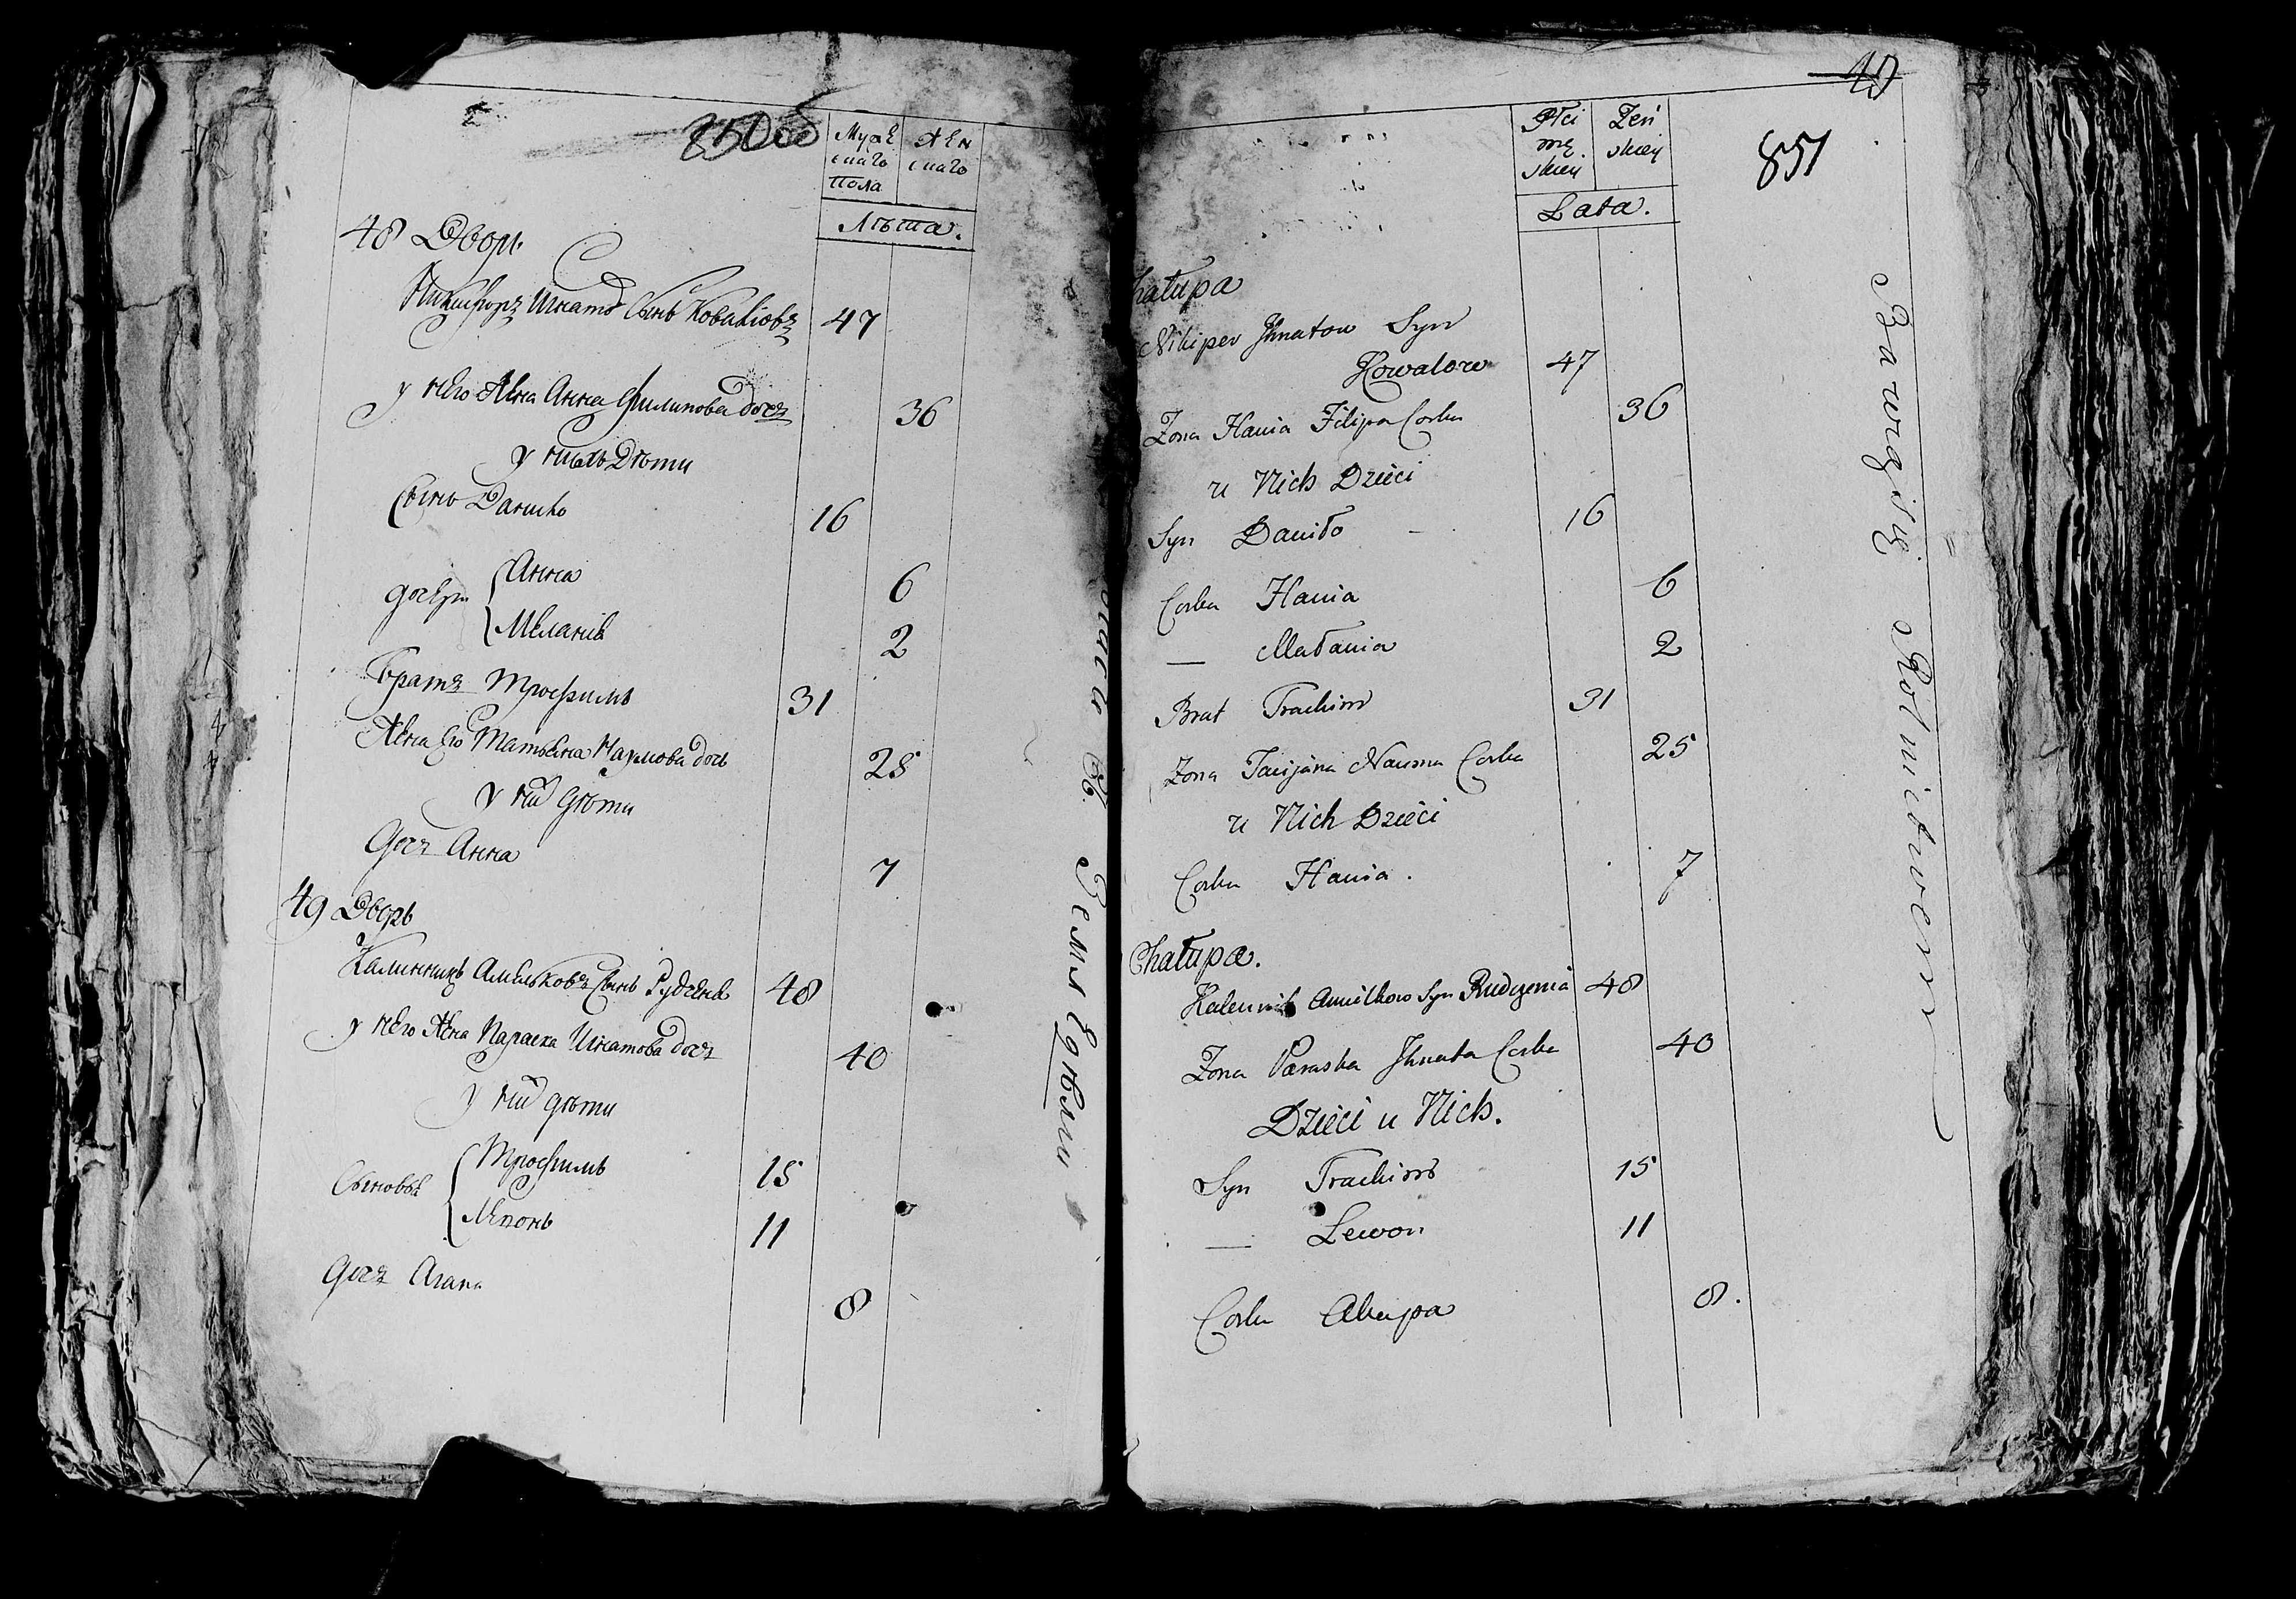 850об
Муже
скаго
Пола
Жен
скаго
Лѣта.
48 Дворъ
Никифоръ Игнатъ Сынъ Ковалювъ 47
у него Жена Анна Филипова дочъ 36
у нихъ Дѣти
Сынъ Данило 16
дочери Анна 6
Меланія 2
Братъ Трофимъ 31
Жена его Татьяна Наумова дочь 25
у них дѣти
Дочъ Анна 7
49 Дворъ
Калинникъ Амельковъ Сынъ Рудченя 48
у него Жена Параска Игнатова дочъ 40
у них дѣти
Сыновья Трофимъ 15
Левонъ 11
Дочъ Агапа 8
Земледѣлию
851
Płci
mę
skiey
Żeń
skiey
Lata.
Chałupa
Nikiper Ihnatow Syn
Kowalow 47
Zona Hania Filipa Corka 36
u Nich Dzieci
Syn Daniło 16
Corka Hania 6
— Małania 2
Brat Trachim 31
Zona Taćjana Nauma Corka 25
u Nich Dzieci
Corka Hania. 7
Chałupa.
Kalennik Amilkow Syn Rudczenia 48
Zona Paraska Ihnata Corka 40
Dzieci u Nich.
Syn Trachim 15
— Lewon 11
Corka Ahapa 8.
Bawią się Rolnictwem